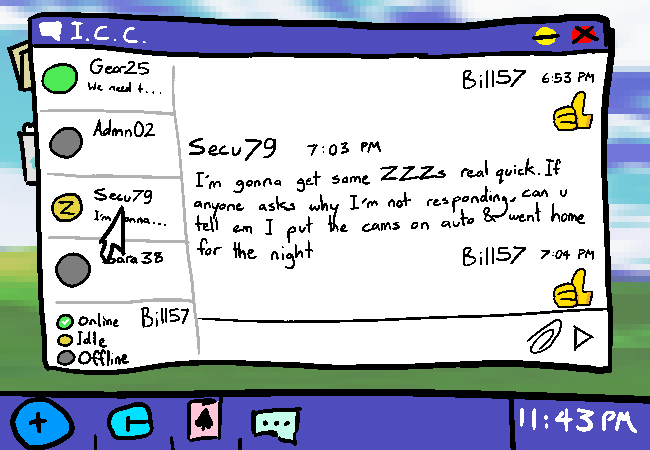 I.C.C.
Gear25
We need t...
Admn02
Secu79
I'm gonna...
ara 38
Online
Idle
Offline
Bill57
Bill57 6:53 PM
Secu79 7:03 PM
I'm gonna get some ZZZs real quick. If
anyone asks why I'm not responding, can u
tell em I put the cams on auto & went home
for the night
Bill57 7:04 PM
11:43 PM